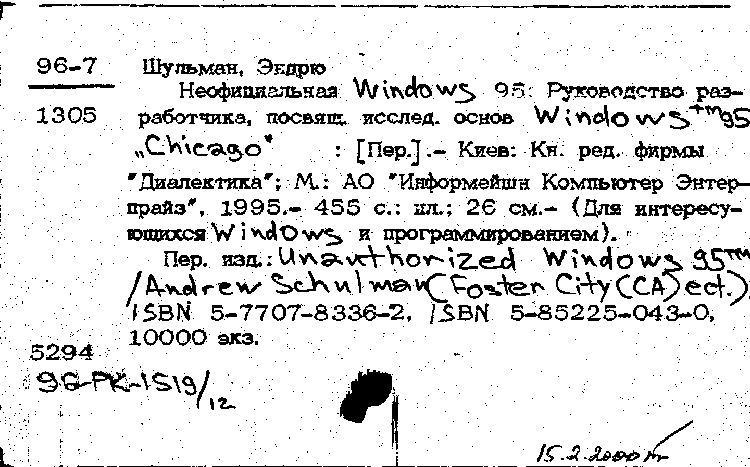 96-7 Шульман, Эндрю
Неофициальная Windows 95: Руководство раз-
1305 работчика, посвящ. исслед. основ Windows™95
„Chicago" : [Пер.].- Киев: Кн. ред. фирмы
"Диалектика"; М.: АО "Информейшн Компьютер Энтер-
прайз", 1995.- 455 с.: ил.; 26 см.- (Для интересу-
ющихся Windows и программированием).
Пер. изд.: Unauthorized Windows 95™
/Andrew Schulman (Foster City (CA) ect.)
ISBN 5-7707-8336-2, ISBN 5-85225-043-0,
10000 экз.
5294
96-РК-1519/12
15.2.2000